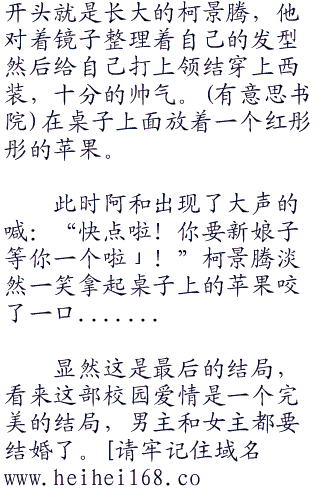 开头就是长大的柯景腾，他
对着镜子整理着自己的发型
然后给自己打上领结穿上西
装，十分的帅气。(有意思书
院)在桌子上面放着一个红彤
彤的苹果。
此时阿和出现了大声的
喊：“快点啦！你要新娘子
等你一个啦」！”柯景腾淡
然一笑拿起桌子上的苹果咬
了一口.......
显然这是最后的结局，
看来这部校园爱情是一个完
美的结局，男主和女主都要
结婚了。[请牢记住域名
www.heihei168.co